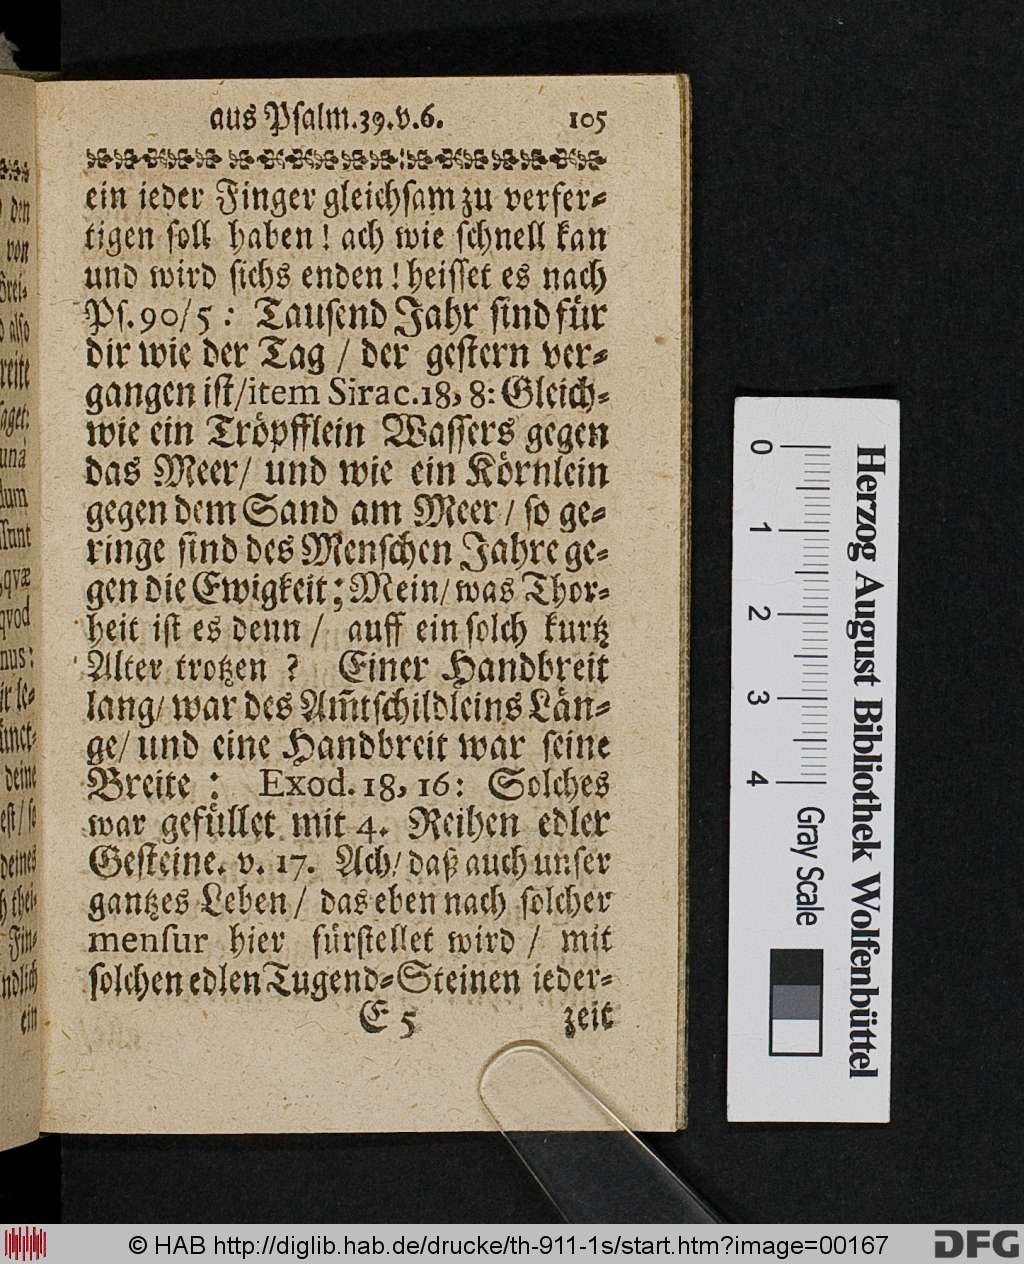 aus Psalm.39.v.6. 105
ein ieder Finger gleichsam zu verfer-
tigen soll haben! ach wie schnell kan
und wird sichs enden! heisset es nach
Ps.90/5: Tausend Jahr sind für
dir wie der Tag / der gestern ver-
gangen ist/item Sirac.18, 8: Gleich-
wie ein Tröpfflein Wassers gegen
das Meer/ und wie ein Körnlein
gegen dem Sand am Meer / so ge-
ringe sind des Menschen Jahre ge-
gen die Ewigkeit; Mein/ was Thor-
heit ist es denn / auff ein solch kurtz
Alter trotzen ? Einer Handbreit
lang/ war des Am̃tschildleins Län-
ge/ und eine Handbreit war seine
Breite : Exod. 18, 16: Solches
war gefüllet mit 4. Reihen edler
Gesteine. v. 17. Ach/ daß auch unser
gantzes Leben / das eben nach solcher
mensur hier fürstellet wird / mit
solchen edlen Tugend-Steinen ieder-
E 5 zeit
den
von
Brei-
also
reite
saget:
unà
dum
ssunt
,qvæ
qvod
nus:
deine
est / so
deines
thei-
Fin-
ndlich
ein
0 1 2 3 4
Gray Scale
Herzog August Bibliothek Wolfenbüttel
© HAB http://diglib.hab.de/drucke/th-911-1s/start.htm?image=00167
DFG